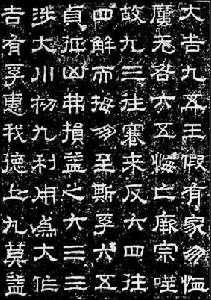 大吉九五王假有家勿恤
厲无咎六五悔亡厥宗噬
故九三往蹇来反六四往
四解而拇多至斯孚六五
貞征凶弗損益之六三三
涉大川初九利用爲大作
吉有孚惠我德上九莫益